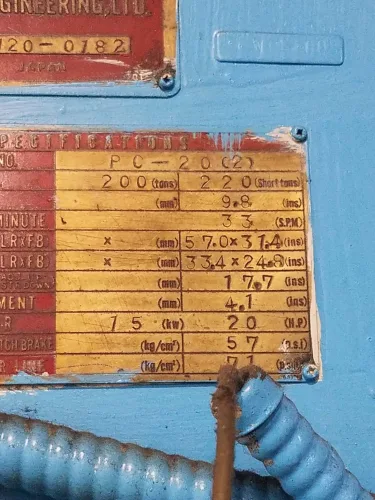 GINEERING,LTD.
120-0182
JAPAN
SPECIFICATIONS
NO. PC-20(2)
200 (tons) 220 (Short tons)
(mm) 9.8 (ins)
MINUTE 33 (S.P.M)
(LRXFB) × (mm) 57.0×31.4 (ins)
(LRXFB) × (mm) 33.4×24.8 (ins)
(mm) 17.7 (ins)
MENT (mm) 4.1 (ins)
R 15 (kw) 20 (H.P)
TCH BRAKE (kg/cm²) 57 (p.s.i)
R LINE (kg/cm²) 71 (p.